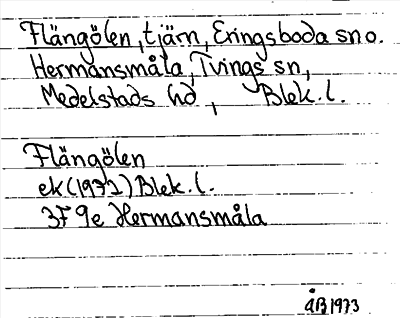 Flängölen, tjärn, Eringsboda sn o.
Hermansmåla, Tvings sn,
Medelstads hd, Blek. l.
Flängölen
ek (1972) Blek. l.
3F 9e Hermansmåla
ÅB 1973